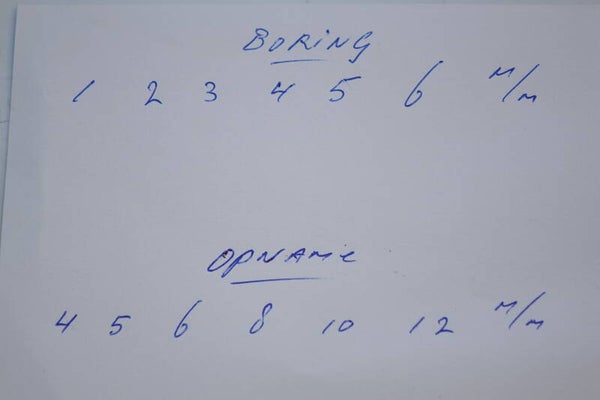 BORING
1 2 3 4 5 6 M/m
OPNAME
4 5 6 8 10 12 M/m